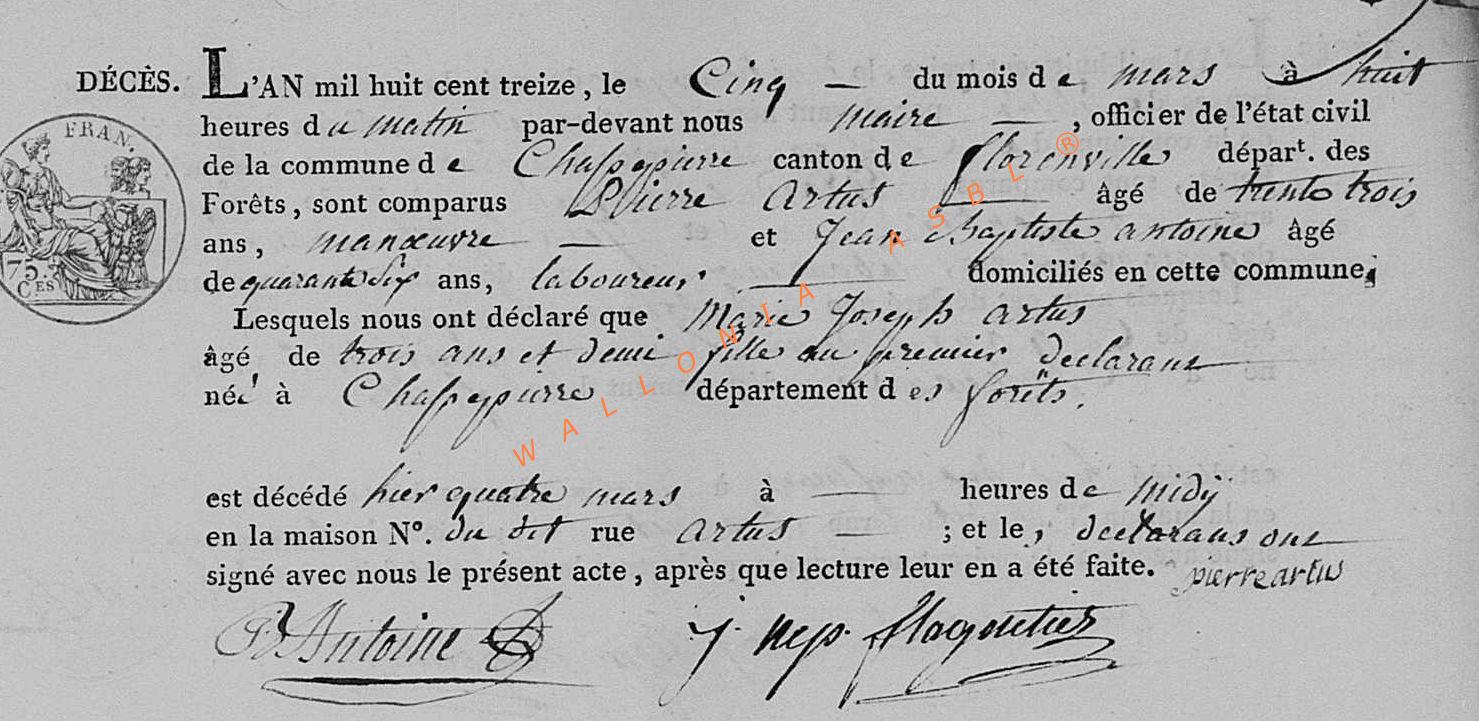 DÉCÈS. L'AN mil huit cent treize, le Cinq — du mois de mars à huit
heures du matin par-devant nous maire —, officier de l'état civil
de la commune de Chassepierre canton de florenville départ. des
Forêts, sont comparus Pierre Artus — âgé de trente trois
ans, manœuvre — et Jean Baptiste antoine âgé
de quarante six ans, laboureur — domiciliés en cette commune,
Lesquels nous ont déclaré que Marie Joseph artus
âgé de trois ans et demi fille au premier declarant
née à Chassepierre département des forêts.
est décédé hier quatre mars à — heures de midÿ
en la maison N°. du dit rue artus — ; et les declarans ont
signé avec nous le présent acte, après que lecture leur en a été faite. pierre artus
Antoine J. nep.
FRAN.
75.
CES
WALLONIA ASBL ®